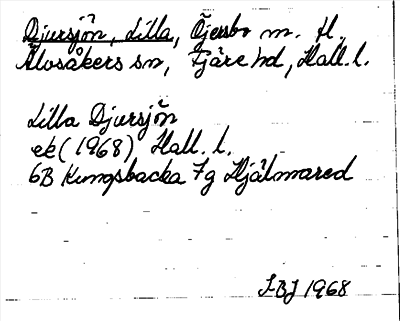 Djursjön, Lilla, Öjersbo m. fl.
Älvsåkers sn, Fjäre hd, Hall. l.
Lilla Djursjön
ek (1968) Hall. l.
6B Kungsbacka 7g Hjälmared
I-BJ 1968